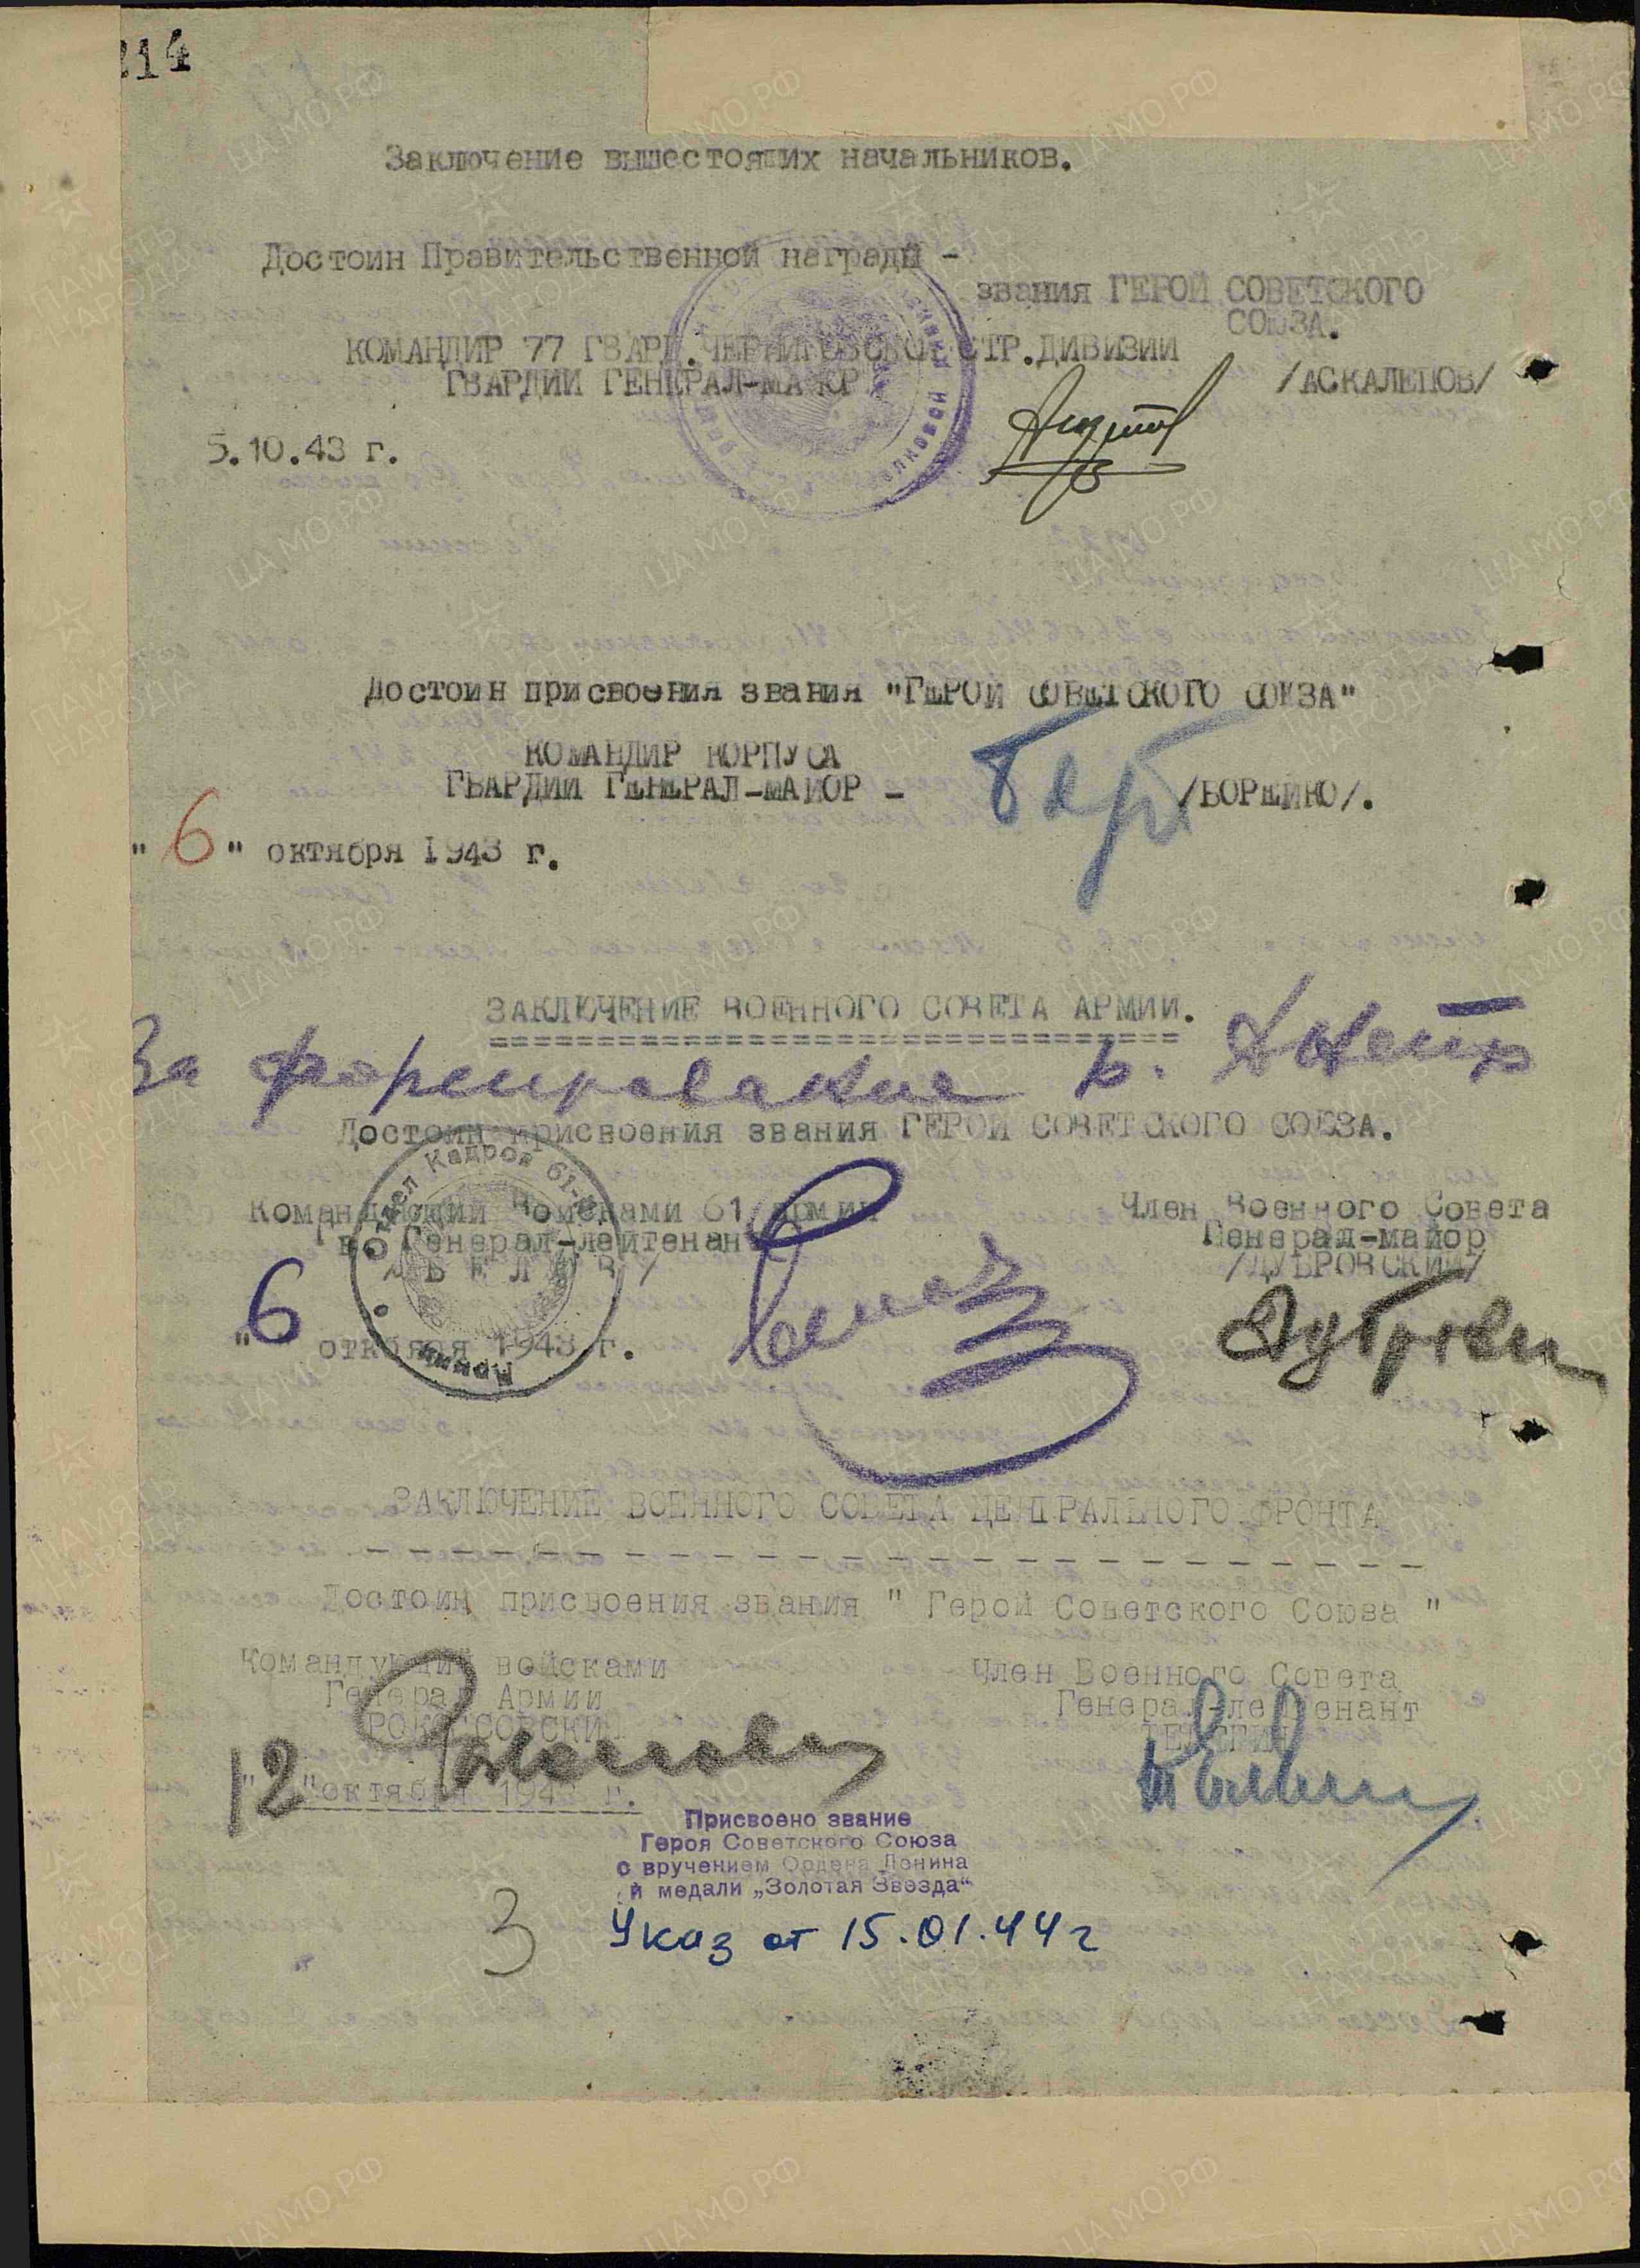 214
Заключение вышестоящих начальников.
Достоин Правительственной награды -
звания ГЕРОЙ СОВЕТСКОГО
СОЮЗА.
КОМАНДИР 77 ГВАРД.ЧЕРНИГОВСКОЙ СТР.ДИВИЗИИ
ГВАРДИИ ГЕНЕРАЛ-МАЙОР /АСКАЛЕПОВ/
5.10.43 г.
Достоин присвоения звания "ГЕРОЙ СОВЕТСКОГО СОЮЗА"
КОМАНДИР КОРПУСА
ГВАРДИИ ГЕНЕРАЛ-МАЙОР - /БОРЕЙКО/.
"6" октября 1943 г.
ЗАКЛЮЧЕНИЕ ВОЕННОГО СОВЕТА АРМИИ.
За форсирование р. Днепр
Достоин присвоения звания ГЕРОЙ СОВЕТСКОГО СОЮЗА.
Отдел Кадров 61-й Армии
Командующий Войсками 61 армии
Генерал-лейтенант
/БЕЛОВ/
Член Военного Совета
Генерал-майор
/ДУБРОВСКИЙ/
"6 откбряя 1943 г.
ЗАКЛЮЧЕНИЕ ВОЕННОГО СОВЕТА ЦЕНТРАЛЬНОГО ФРОНТА
Достоин присвоения звания " Герой Советского Союза "
Командующий войсками
Генерал Армии
РОКОССОВСКИЙ
Член Военного Совета
Генерал-лейтенант
ТЕЛЕГИН
"12 "октября 1943 г.
Присвоено звание
Героя Советского Союза
с вручением Ордена Ленина
и медали „Золотая Звезда“
3
Указ от 15.01.44г